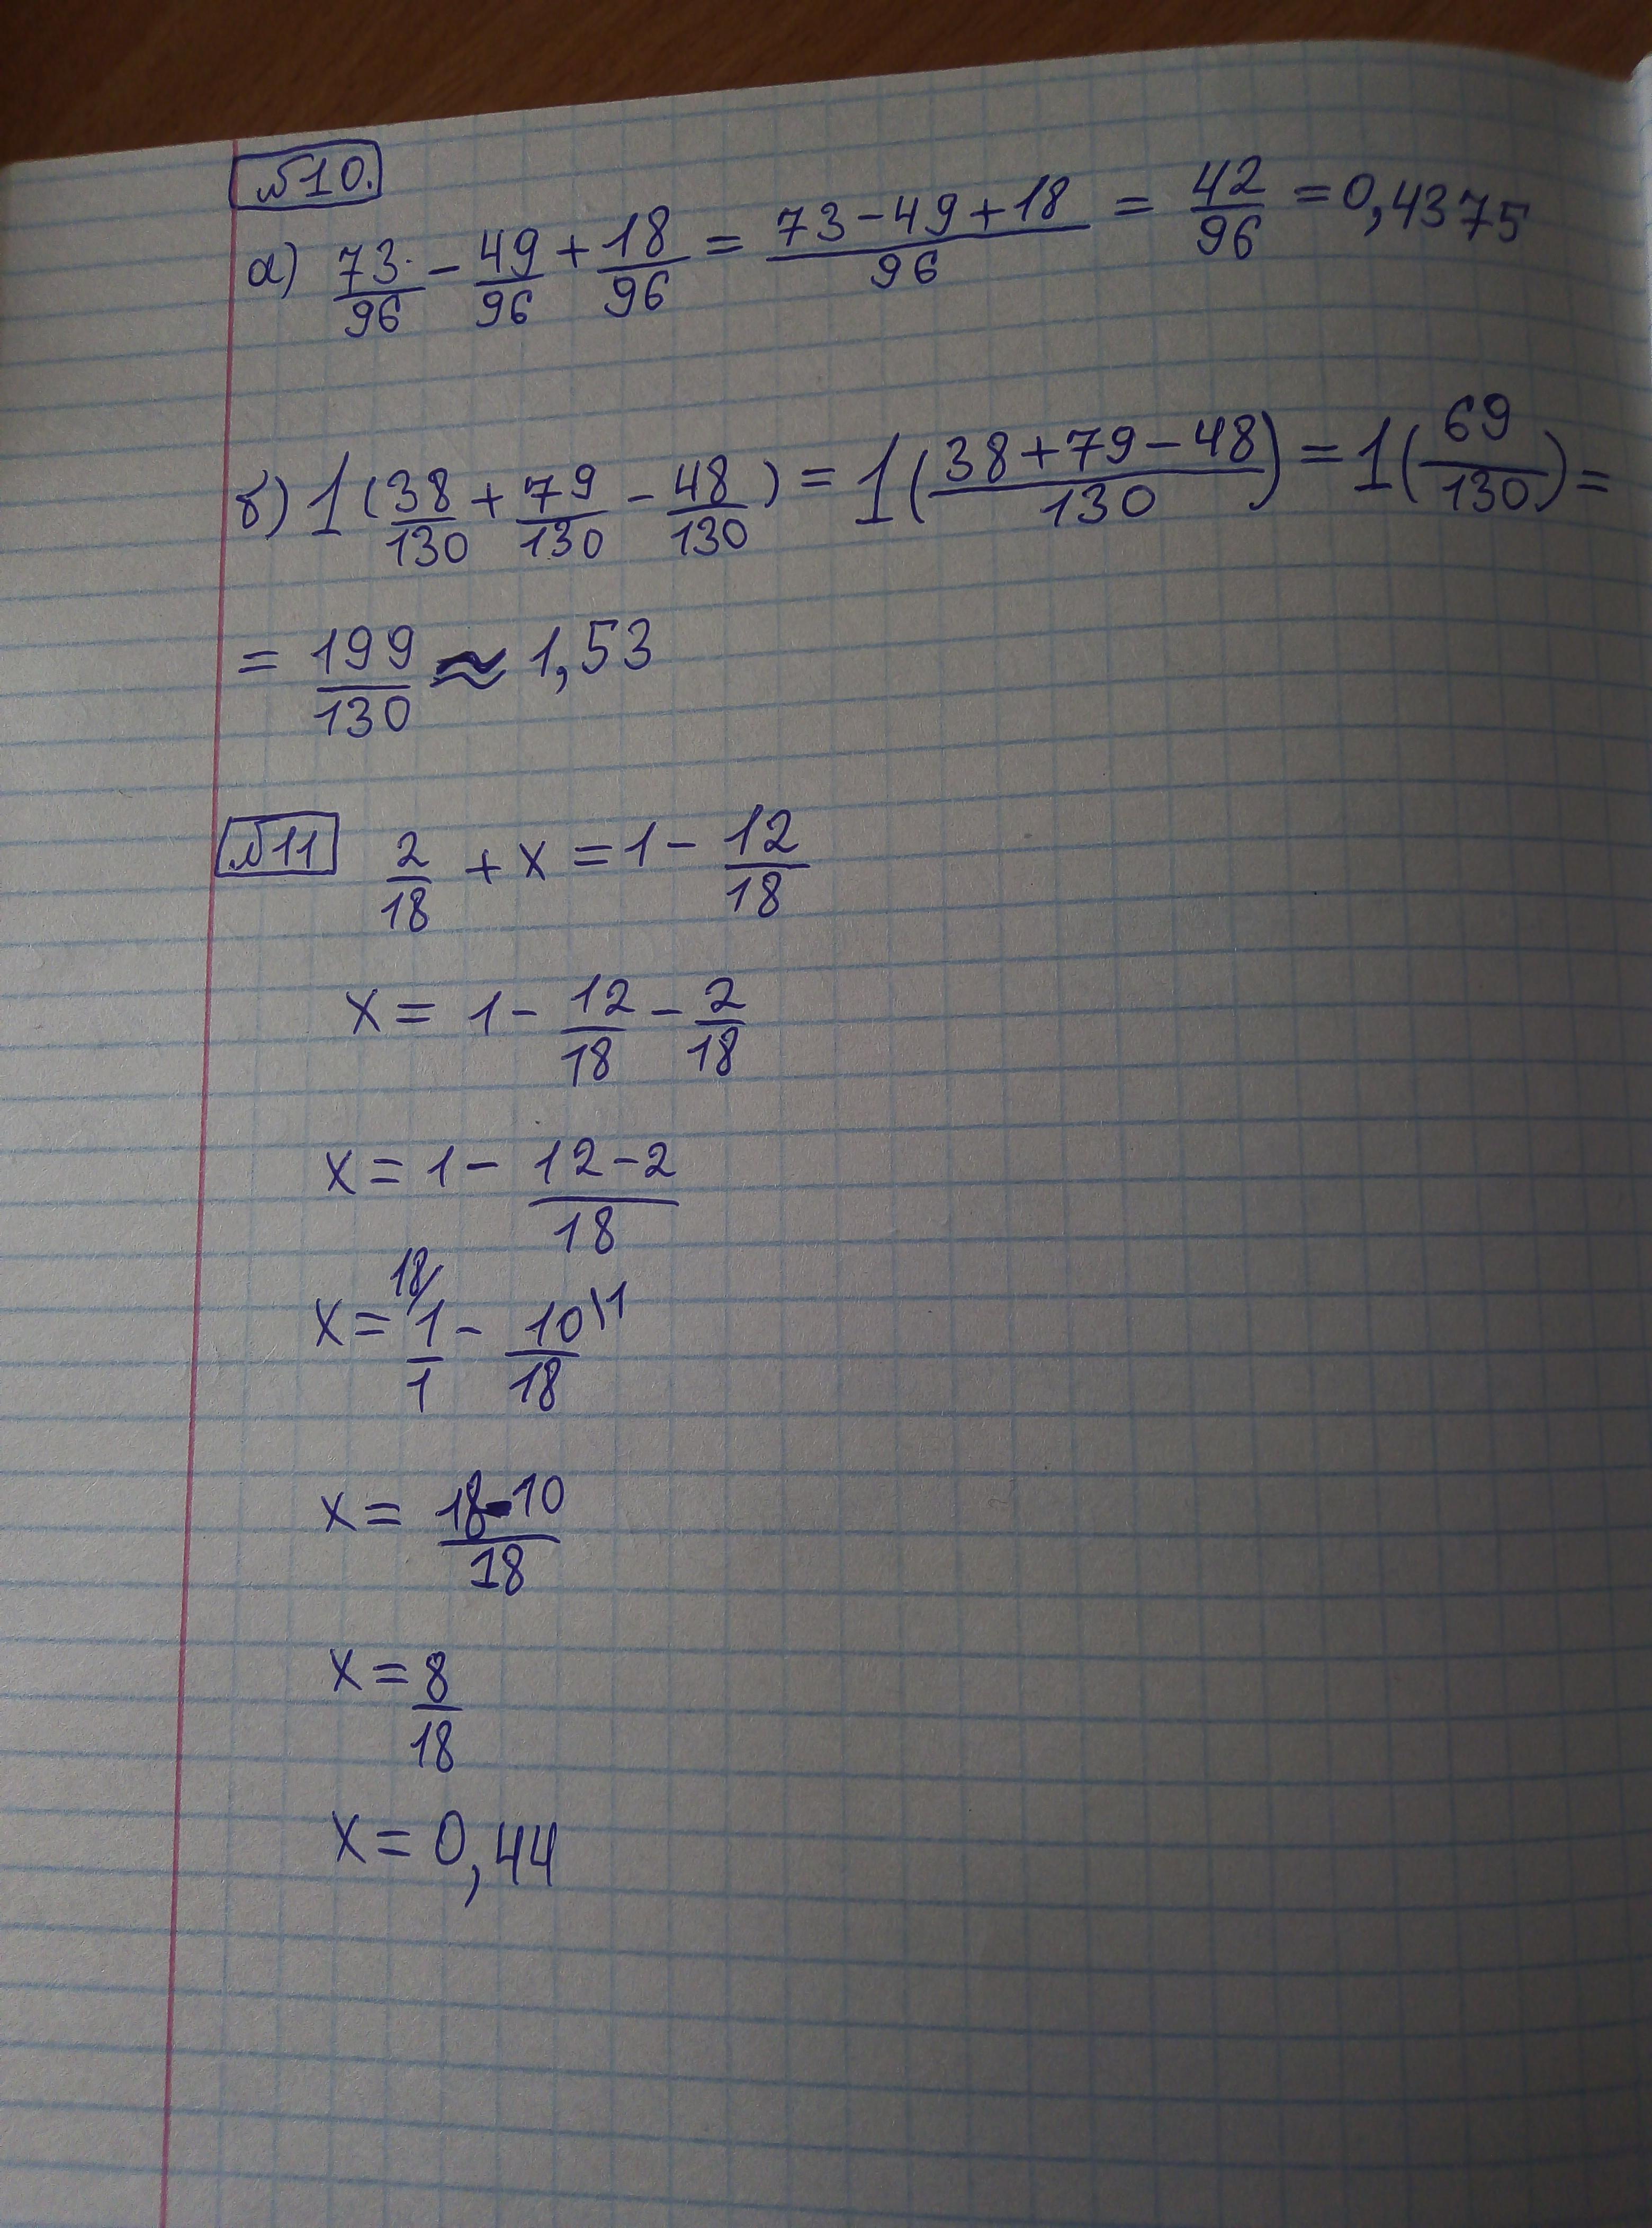 №10.
а) 73/96 - 49/96 + 18/96 = (73-49+18)/96 = 42/96 = 0,4375
б) 1(38/130 + 79/130 - 48/130) = 1((38+79-48)/130) = 1(69/130) =
= 199/130 ≈ 1,53
№11 2/18 + x = 1 - 12/18
x = 1 - 12/18 - 2/18
x = 1 - (12-2)/18
x = 18/ 1/1 - 10/18 \1
x = (18-10)/18
x = 8/18
x = 0,44